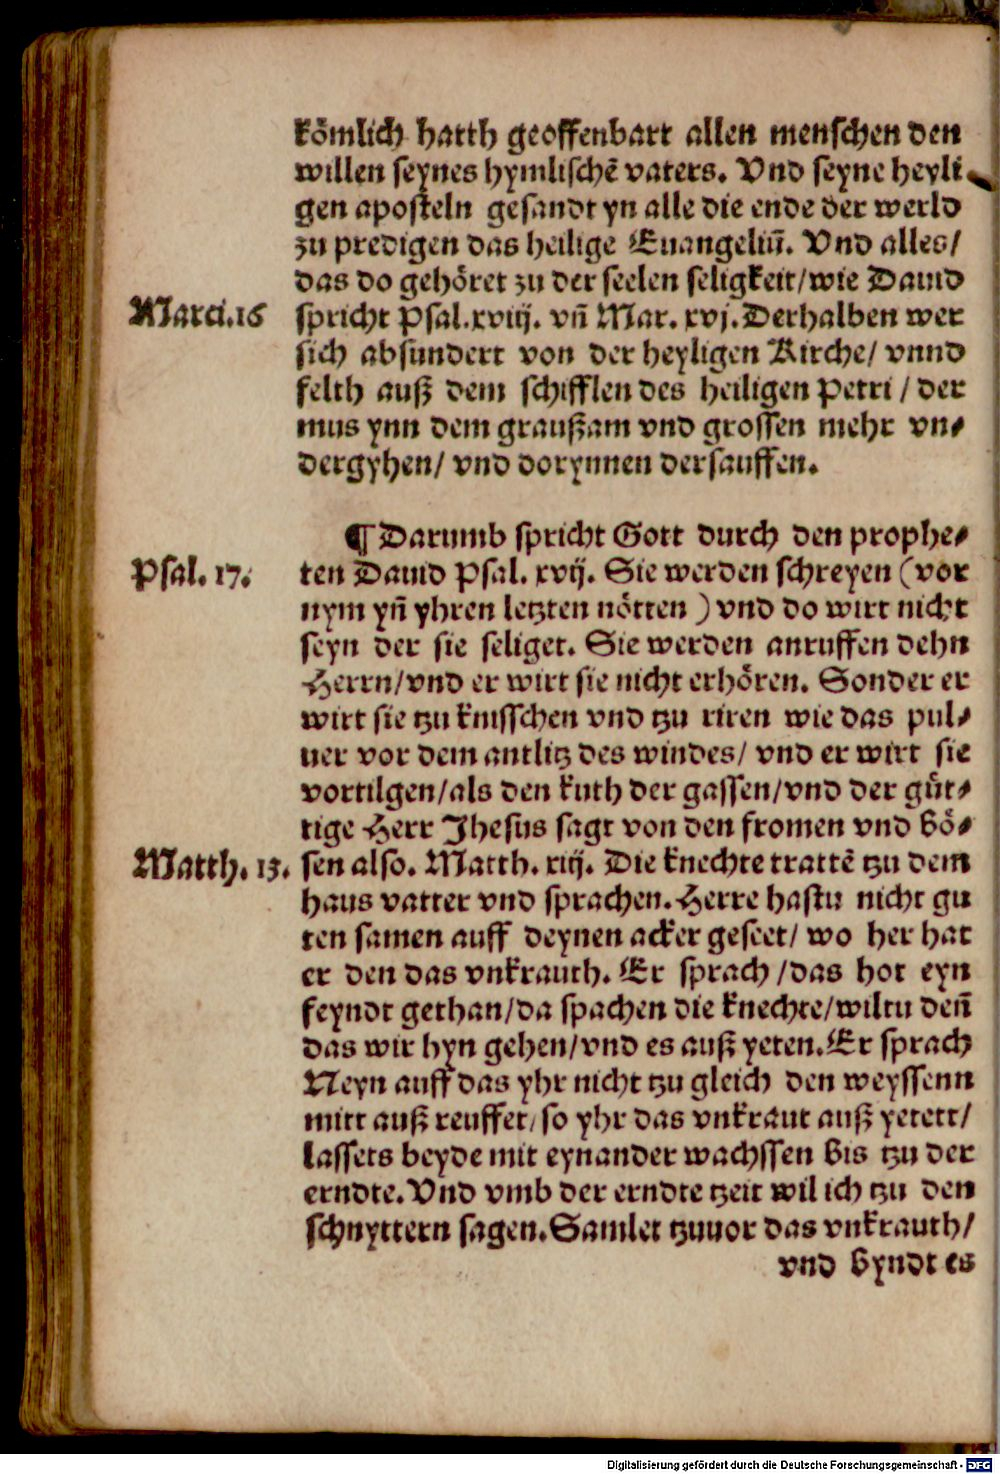 kömlich hatth geoffenbart allen menschen den
willen seynes hymlischē vaters. Vnd seyne heyli
gen aposteln gesandt yn alle die ende der werld
zu predigen das heilige Euangeliū. Vnd alles/
das do gehöret zu der seelen seligkeit/wie Dauid
Marci.16
spricht Psal.xviij. vn̄ Mar. xvj. Derhalben wer
sich absundert von der heyligen Kirche/ vnnd
felth auß dem schifflen des heiligen Petri / der
mus ynn dem graußam vnd grossen mehr vn⸗
dergyhen/ vnd dorynnen dersauffen.
¶ Darumb spricht Gott durch den prophe⸗
Psal. 17.
ten Dauid Psal. xvij. Sie werden schreyen (vor
nym yn̄ yhren letzten nötten ) vnd do wirt nicht
seyn der sie seliget. Sie werden anruffen dehn
Herrn/vnd er wirt sie nicht erhören. Sonder er
wirt sie tzu knisschen vnd tzu riren wie das pul⸗
uer vor dem antlitz des windes/ vnd er wirt sie
vortilgen/als den kuth der gassen/vnd der güt⸗
tige Herr Jhesus sagt von den fromen vnd bö⸗
Matth. 13.
sen also. Matth. xiij. Die knechte trattē tzu dem
haus vatter vnd sprachen. Herre hastu nicht gu
ten samen auff deynen acker geseet/ wo her hat
er den das vnkrauth. Er sprach /das hot eyn
feyndt gethan/da spachen die knechte/wiltu den̄
das wir hyn gehen/vnd es auß yeten. Er sprach
Neyn auff das yhr nicht tzu gleich den weyssenn
mitt auß reuffet/ so yhr das vnkraut auß yetett/
lassets beyde mit eynander wachssen bis tzu der
erndte. Vnd vmb der erndte tzeit wil ich tzu den
schnyttern sagen. Samlet tzuuor das vnkrauth/
vnd byndt es
Digitalisierung gefördert durch die Deutsche Forschungsgemeinschaft - DFG